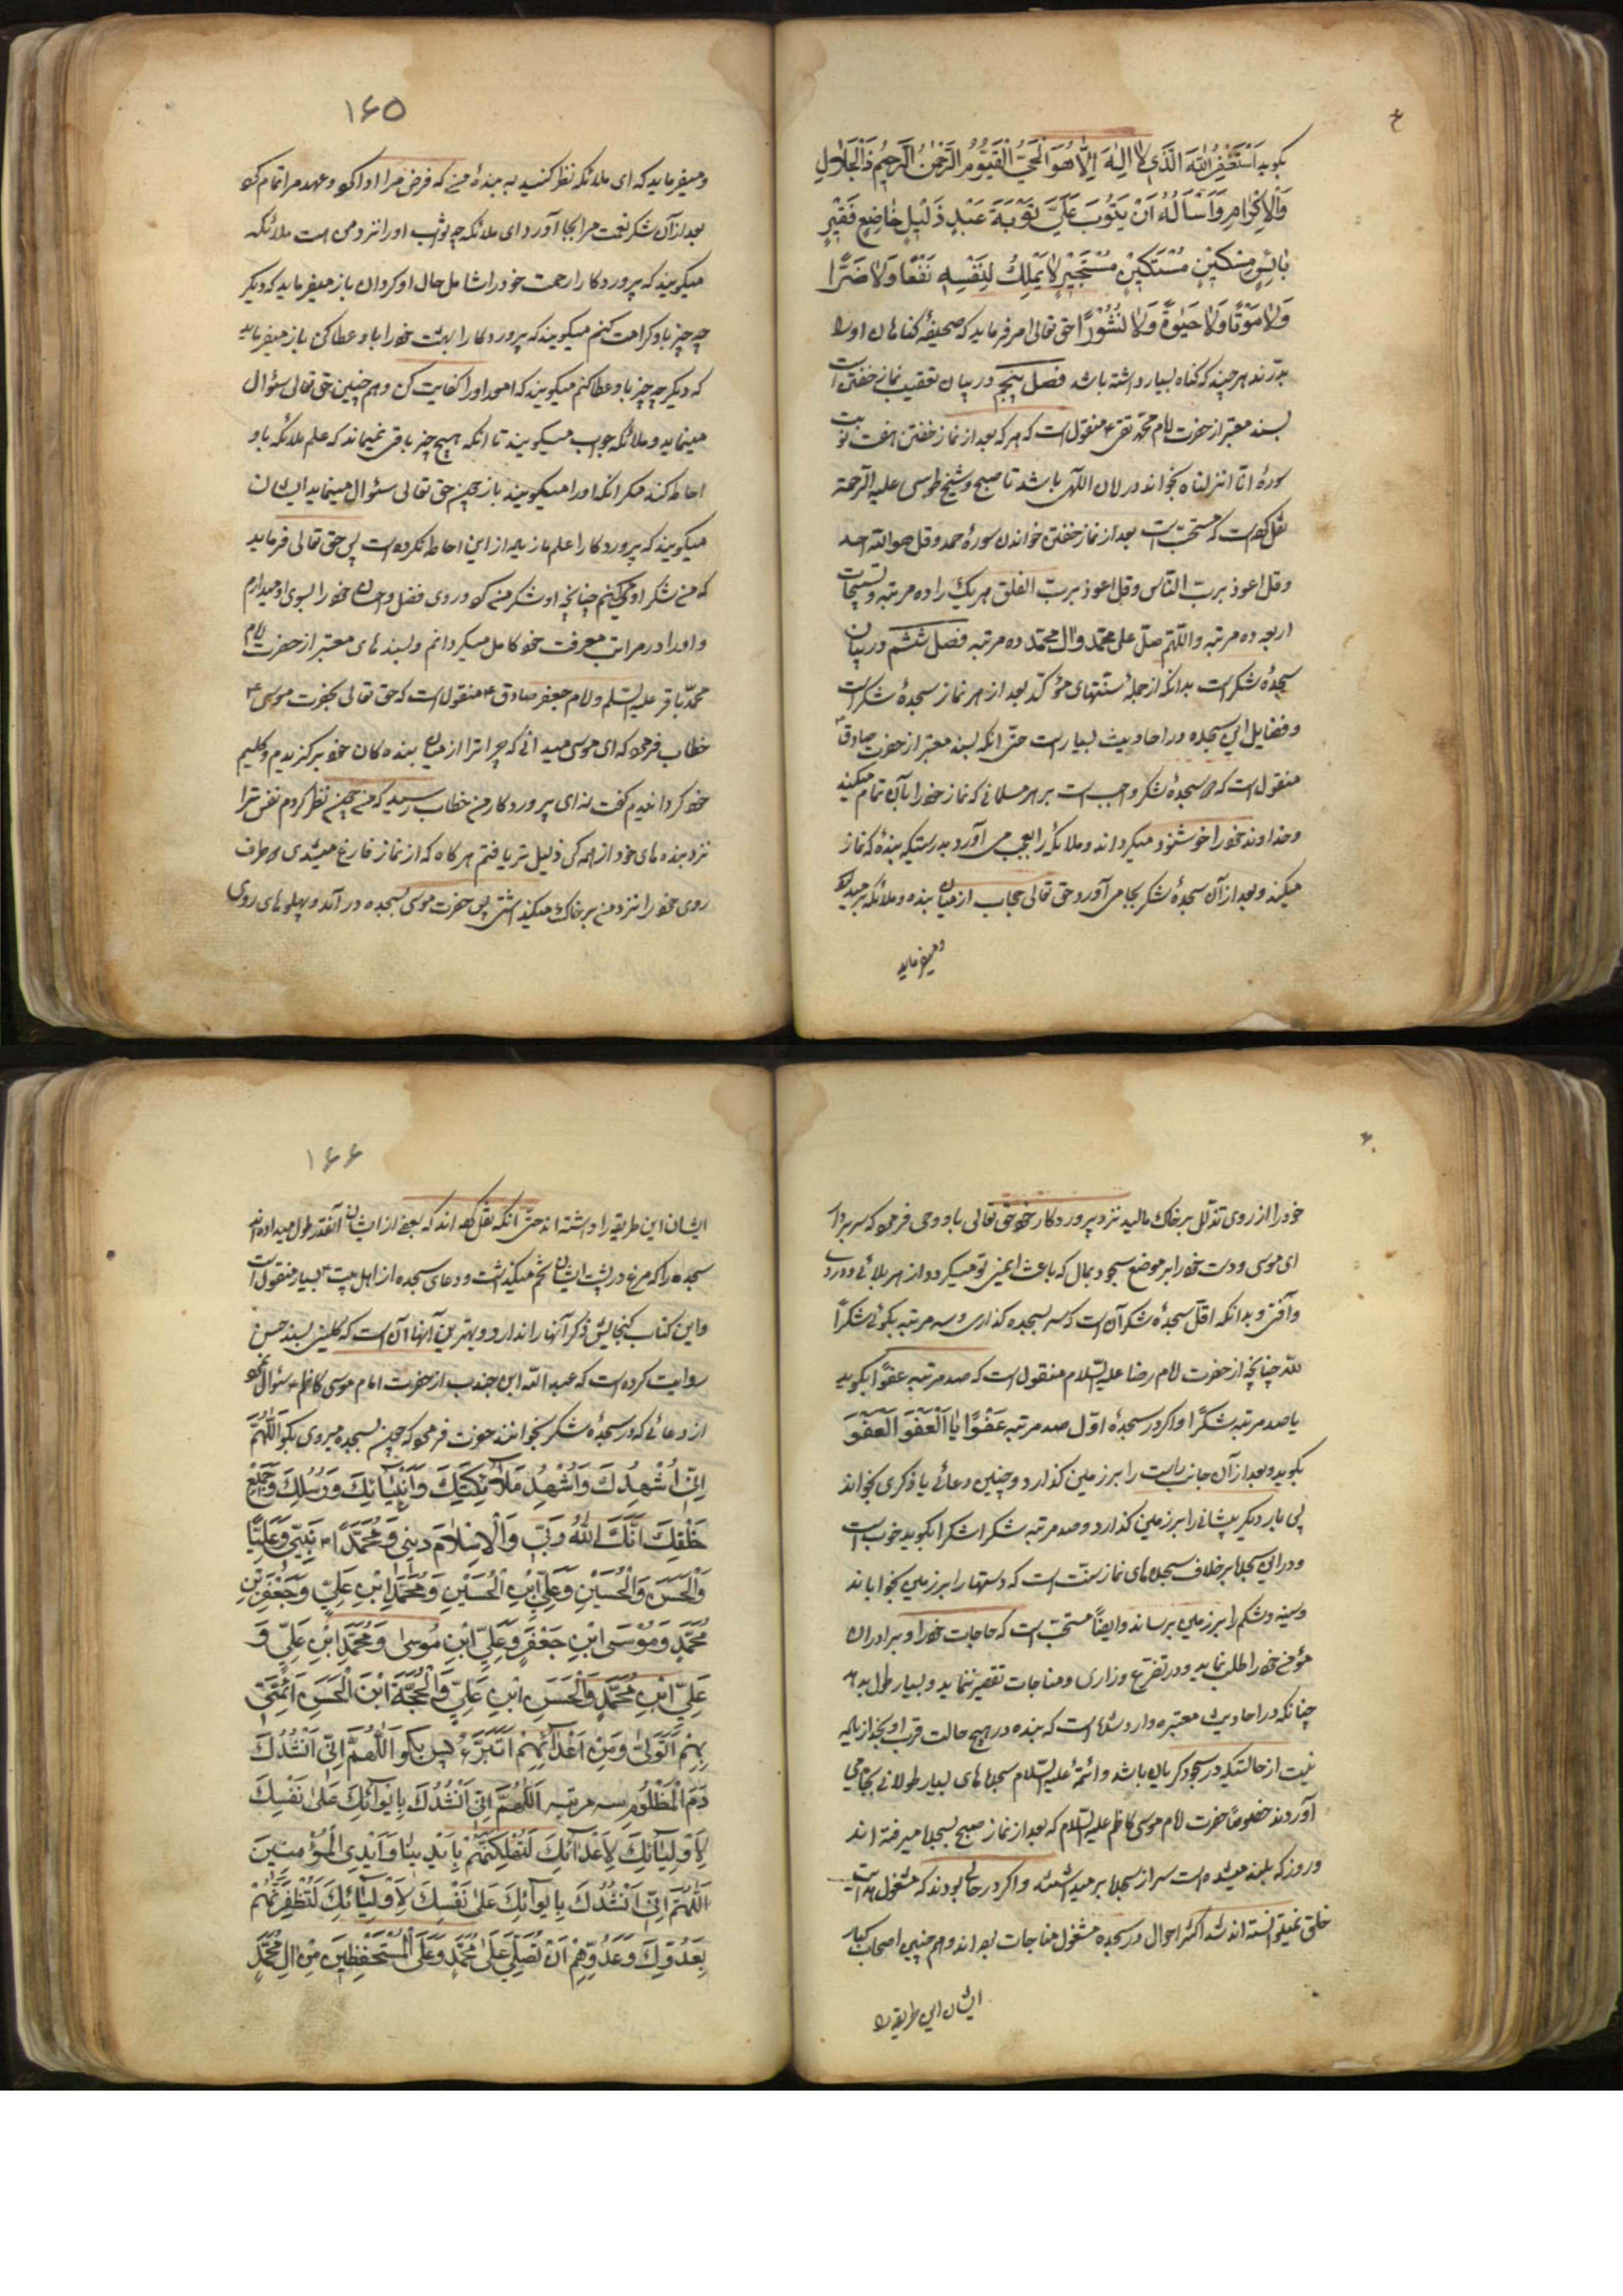 بگوید اَسْتَغْفِرُ اللهَ الَّذی لا اِلٰهَ اِلّا هُوَ الْحَیُّ الْقَیُّومُ الرَّحْمٰنُ الرَّحیمُ ذَا الْجَلالِ
وَالْاِکْرامِ وَاَسْأَلُهُ اَنْ یَتُوبَ عَلَیَّ تَوْبَةَ عَبْدٍ ذَلیلٍ خاضِعٍ فَقیرٍ
بائِسٍ مِسْکینٍ مُسْتَکینٍ مُسْتَجیرٍ لا یَمْلِکُ لِنَفْسِهِ نَفْعًا وَلا ضَرًّا
وَلا مَوْتًا وَلا حَیٰوةً وَلا نُشُورًا حق تعالی امر فرماید که صحیفهٔ گناهان او را
بدرند هر چند که گناه بسیار داشته باشد فصل پنجم در بیان تعقیب نماز خفتن است
بسند معتبر از حضرت امام محمد تقی ع منقول است که هر که بعد از نماز خفتن هفت نوبت
سورهٔ انا انزلناه بخواند در امان الٓهی باشد تا صبح و شیخ طوسی علیه الرحمة
نقل کرده است که مستحب است بعد از نماز خفتن خواندن سورهٔ حمد و قل هو الله احد
و قل اعوذ برب الناس و قل اعوذ برب الفلق هر یک را ده مرتبه و تسبیحات
اربعه ده مرتبه و اللهم صل علی محمد و ال محمد ده مرتبه فصل ششم در بیان
سجدهٔ شکر است بدانکه از جملهٔ سنتهای مؤکد بعد از هر نماز سجدهٔ شکر است
و فضایل این سجده در احادیث بسیار است حتی آنکه بسند معتبر از حضرت صادق ع
منقول است که سجدهٔ شکر واجب است بر هر مسلمانی که نماز خود را بآن تمام میکند
و خداوند خود را خوشنود میگرداند و ملائکه را بعجب می آورد بدرستیکه بندهٔ که نماز
میکند و بعد از آن سجدهٔ شکر بجا می آورد حق تعالی حجاب از میان بنده و ملائکه بر میدارد
و میفرماید
۱۶۵
و میفرماید که ای ملائکه نظر کنید به بندهٔ من که فرض مرا ادا کرد و عهد مرا تمام کرد
بعد از آن شکر نعمت مرا بجا آورد ای ملائکه چه ثواب او را نزد من است ملائکه
میگویند که پروردگارا رحمت خود را شامل حال او گردان باز میفرماید که دیگر
چه چیز باو کرامت کنم میگویند که پروردگارا بهشت خود را باو عطا کن باز میفرماید
که دیگر چه چیز باو عطا کنم میگویند که امور او را کفایت کن و همچنین حق تعالی سؤال
مینماید و ملائکه جواب میگویند تا آنکه هیچ چیز باقی نمیماند که علم ملائکه باو
احاطه کند مگر آنکه او را میگویند باز چون حق تعالی سئوال مینماید ایشان
میگویند که پروردگارا علم ما زیاده از این احاطه نکرده است پس حق تعالی فرماید
که من شکر او میکنم چنانچه او شکر من کرد و روی فضل و احسان خود را بسوی او میدارم
و او را در مراتب معرفت خود کامل میگردانم و بسندهای معتبر از حضرت امام
محمد باقر علیه السلم و امام جعفر صادق ع منقول است که حق تعالی بحضرت موسی ع
خطاب فرمود که ای موسی میدانی که چرا ترا از میان بنده کان خود برگزیدم و کلیم
خود گردانیدم گفت نه ای پروردگار من خطاب رسید که من چون نظر کردم نفس ترا
نزد بنده های خود از همه کس ذلیل تر یافتم هر گاه که از نماز فارغ میشدی دو طرف
روی خود را نزد من بر خاک میگذاشتی پس حضرت موسی بسجده در آمد و پهلوهای روی
خود را از روی تذلل بر خاک مالید نزد پروردگار خود حق تعالی باو وحی فرمود که سر بردار
ای موسی و دست خود را بر موضع سجود بمال که باعث ایمنی تو میگردد از هر بلائی و دردی
و آفتی و بدانکه اقل سجدهٔ شکر آن است که سر بسجده گذاری و سه مرتبه بگوئی شکراً
للّه چنانچه از حضرت امام رضا علیه السلام منقول است که صد مرتبه عفواً بگوید
یا صد مرتبه شکرًا و اگر در سجدهٔ اول صد مرتبه عَفْوًا یا اَلْعَفْوَ اَلْعَفْوَ
بگوید و بعد از آن جانب راست را بر زمین گذارد و چنین دعائی یا ذکری بخواند
پس بار دیگر پیشانی را بر زمین گذارد و صد مرتبه شکرا شکرا بگوید خوب است
و در این سجده بر خلاف سجده های نماز سنت است که دستها را بر زمین بخواباند
و سینه و شکم را بر زمین برساند و ایضاً مستحب است که حاجات خود را و برادران
مؤمن خود را طلب نماید و در تضرع و زاری و مناجات تقصیر ننماید و بسیار طول بدهد
چنانکه در احادیث معتبره وارد شده است که بنده در هیچ حالت قرب او بخدا زیاده
نیست از حالتیکه در سجود گریان باشد و ائمه علیه السلام سجده های بسیار طولانی بجا می
آوردند خصوصاً حضرت امام موسی کاظم علیه السلام که بعد از نماز صبح بسجده میرفته اند
و روز که بلند میشده است سر از سجده بر میداشتند و اگر در جائی بودند که مشغول هدایت
خلق نمیتوانسته اند شد اکثر احوال در سجده مشغول مناجات بوده اند و همچنین اصحاب کبار
ایشان این طریقه را
۱۶۶
ایشان این طریقه را داشته اند حتی آنکه نقل کرده اند که بعضی از ایشان آنقدر طول میداده اند
سجده را که مرغ در پشت ایشان تخم میگذاشت و دعای سجده از اهل بیت ع بسیار منقول است
و این کتاب گنجایش ذکر آنها را ندارد و بهترین آنها آن است که کلینی بسند حسن
روایت کرده است که عبد الله ابن جندب از حضرت امام موسی کاظم ع سئوال نمود
از دعائی که در سجدهٔ شکر بخوانند حضرت فرمود که چون بسجده میروی بگو اَللّهُمَّ
اِنّی اُشْهِدُکَ وَاُشْهِدُ مَلائِکَتِکَ وَاَنْبِیائِکَ وَرُسُلِکَ وَجَمیعَ
خَلْقِکَ اَنَّکَ اللهُ رَبّی وَالْاِسْلامَ دینی وَمُحَمَّدًا نَبِیّی وَعَلِیًّا
وَالْحَسَنَ وَالْحُسَیْنِ وَعَلِیِّ ابْنِ الْحُسَیْنِ وَمُحَمَّدِ ابْنِ عَلِیٍّ وَجَعْفَرِ بْنِ
مُحَمَّدٍ وَمُوْسَی ابْنِ جَعْفَرٍ وَعَلِیِّ ابْنِ مُوسیٰ وَمُحَمَّدِ ابْنِ عَلِیٍّ وَ
عَلِیِّ ابْنِ مُحَمَّدٍ وَالْحَسَنِ ابْنِ عَلِیٍّ وَالْحُجَّةَ ابْنَ الْحَسَنِ اَئِمَّتی
بِهِمْ اَتَوَلّیٰ وَمِنْ اَعْدائِهِمْ اَتَبَرَّءُ پس بگو اَللّهُمَّ اِنّی اَنْشُدُکَ
دَمَ الْمَظْلُومِ سه مرتبه اَللّهُمَّ اِنّی اَنْشُدُکَ بِایوائِکَ عَلیٰ نَفْسِکَ
لِاَوْلِیائِکَ لِاَعْدائِکَ لَتُهْلِکَنَّهُمْ بِاَیْدینا وَاَیْدِی الْمُؤْمِنینَ
اَللّهُمَّ اِنّی اَنْشُدُکَ بِایوائِکَ عَلیٰ نَفْسِکَ لِاَوْلِیائِکَ لَتُظْفِرَنَّهُمْ
بِعَدُوِّکَ وَعَدُوِّهِمْ اَنْ تُصَلِّیَ عَلیٰ مُحَمَّدٍ وَعَلَی الْمُسْتَحْفِظینَ مِنْ الِ مُحَمَّدٍ